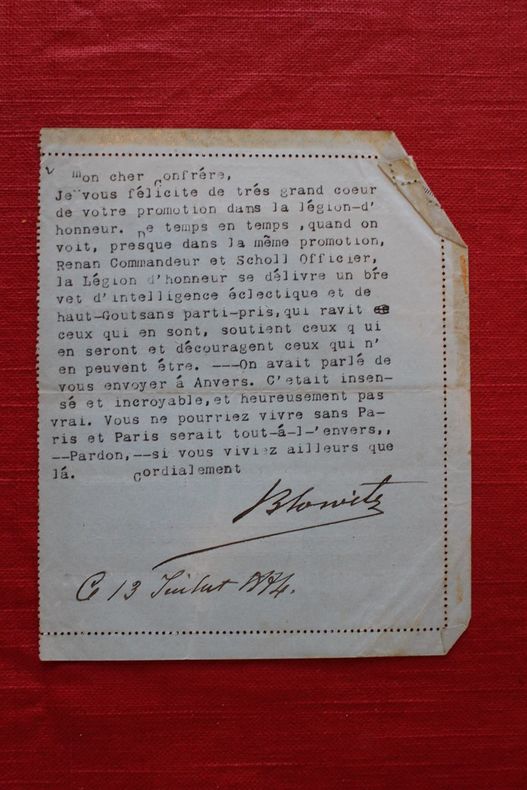 mon cher confrére,
Je vous félicite de trés grand coeur
de votre promotion dans la légion-d'
honneur. De temps en temps ,quand on
voit, presque dans la même promotion,
Renan Commandeur et Scholl Officier,
la Légion d'honneur se délivre un bre
vet d'intelligence éclectique et de
haut-Goutsans parti-pris,qui ravit
ceux qui en sont, soutient ceux q ui
en seront et découragent ceux qui n'
en peuvent étre. ---On avait parlé de
vous envoyer á Anvers. C'etait insen-
sé et incroyable,et heureusement pas
vrai. Vous ne pourriez vivre sans Pa-
ris et Paris serait tout-á-l-'envers,,
--Pardon,--si vous viviez ailleurs que
lá. Cordialement
Blowitz
Ce 13 Juillet